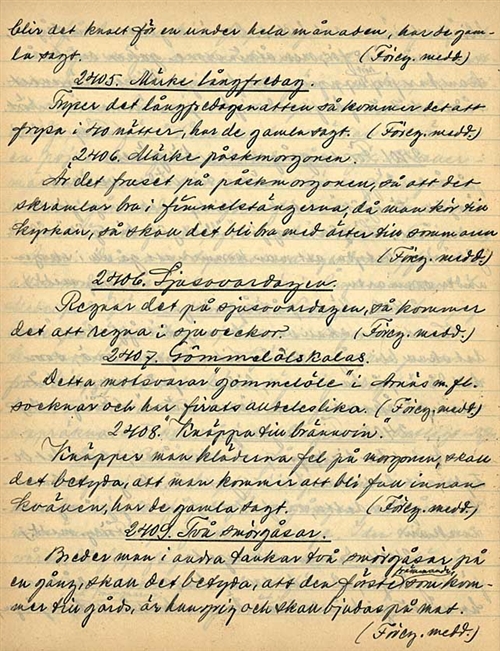 blir det knalt för en under hela månaden, har de gam-
la sagt. (Föreg. medd.)
2405. Märke långfredag.
Fryser det långfredagsnatten så kommer det att
frysa i 40 nätter, har de gamla sagt. (Föreg. medd.)
2406. Märke påskmorgonen.
Är det fruset på påskmorgonen, så att det
skramlar bra i fimmelstängerna, då man kör till
kyrkan, så skall det bli bra med ärter till sommaren
(Föreg. medd.)
2406. Sjusovardagen.
Regnar det på sjusovardagen, så kommer
det att regna i sju veckor. (Föreg. medd.)
2407. Gömmelölskalas.
Detta motsvarar "gömmelöle" i Arnäs m. fl.
socknar och har firats alldeles lika. (Föreg. medd.)
2408. "Knäppa till brännvin."
Knäpper man kläderna fel på morgonen, skall
det betyda, att man kommer att bli full innan
kvällen, har de gamla sagt. (Föreg. medd.)
2409. Två smörgåsar.
Breder man i andra tankar två smörgåsar på
en gång, skall det betyda, att den förste främmande som kom-
mer till gårds, är hungrig och skall bjudas på mat.
(Föreg. medd.)